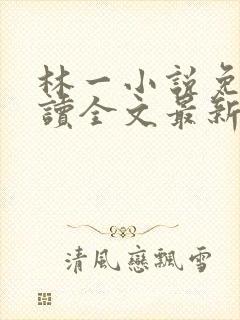 林一小說免
讀全文最新
清風戀飄雪